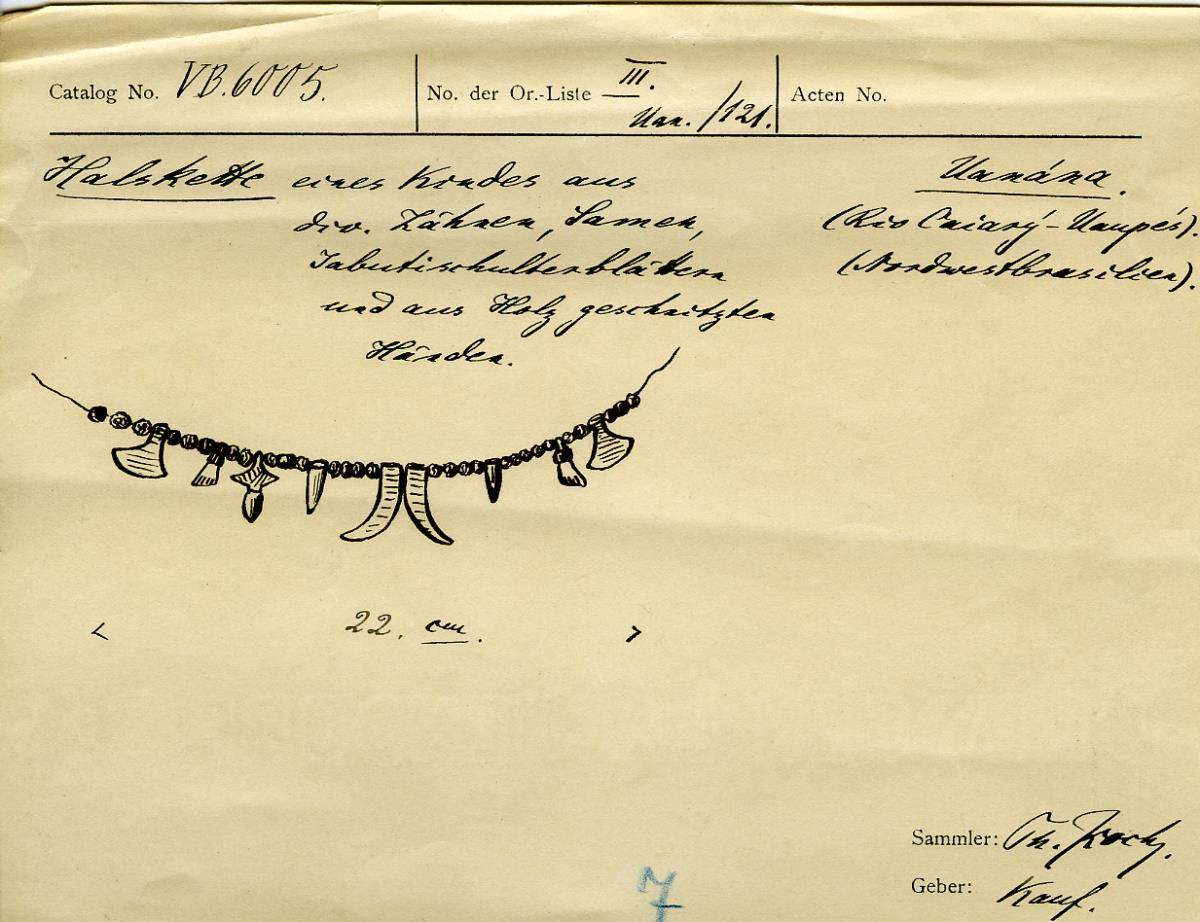 Catalog No. VB. 6005.
No. der Or.-Liste III. Uan. /121.
Acten No.
Halskette eines Kindes aus
div. Zähnen, Samen,
Jabutischulterblättern
und aus Holz geschnitzten
Händen.
Uanána.
(Rio Caiarý-Uaupés).
(Nordwestbrasilien).
< 22. cm. >
Sammler: Th. Koch.
Geber: Kauf.
7